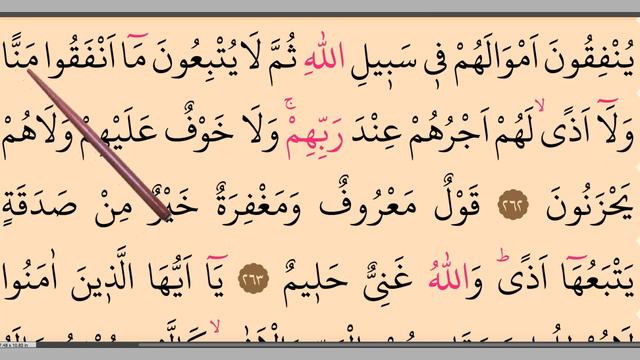 يُنْفِقُونَ اَمْوَالَهُمْ ف۪ي سَب۪يلِ اللّٰهِ ثُمَّ لَا يُتْبِعُونَ مَٓا اَنْفَقُوا مَنًّا
وَلَٓا اَذًىۙ لَهُمْ اَجْرُهُمْ عِنْدَ رَبِّهِمْۚ وَلَا خَوْفٌ عَلَيْهِمْ وَلَا هُمْ
يَحْزَنُونَ ﴿٢٦٢﴾ قَوْلٌ مَعْرُوفٌ وَمَغْفِرَةٌ خَيْرٌ مِنْ صَدَقَةٍ
يَتْبَعُهَٓا اَذًىۜ وَاللّٰهُ غَنِيٌّ حَل۪يمٌ ﴿٢٦٣﴾ يَٓا اَيُّهَا الَّذ۪ينَ اٰمَنُوا